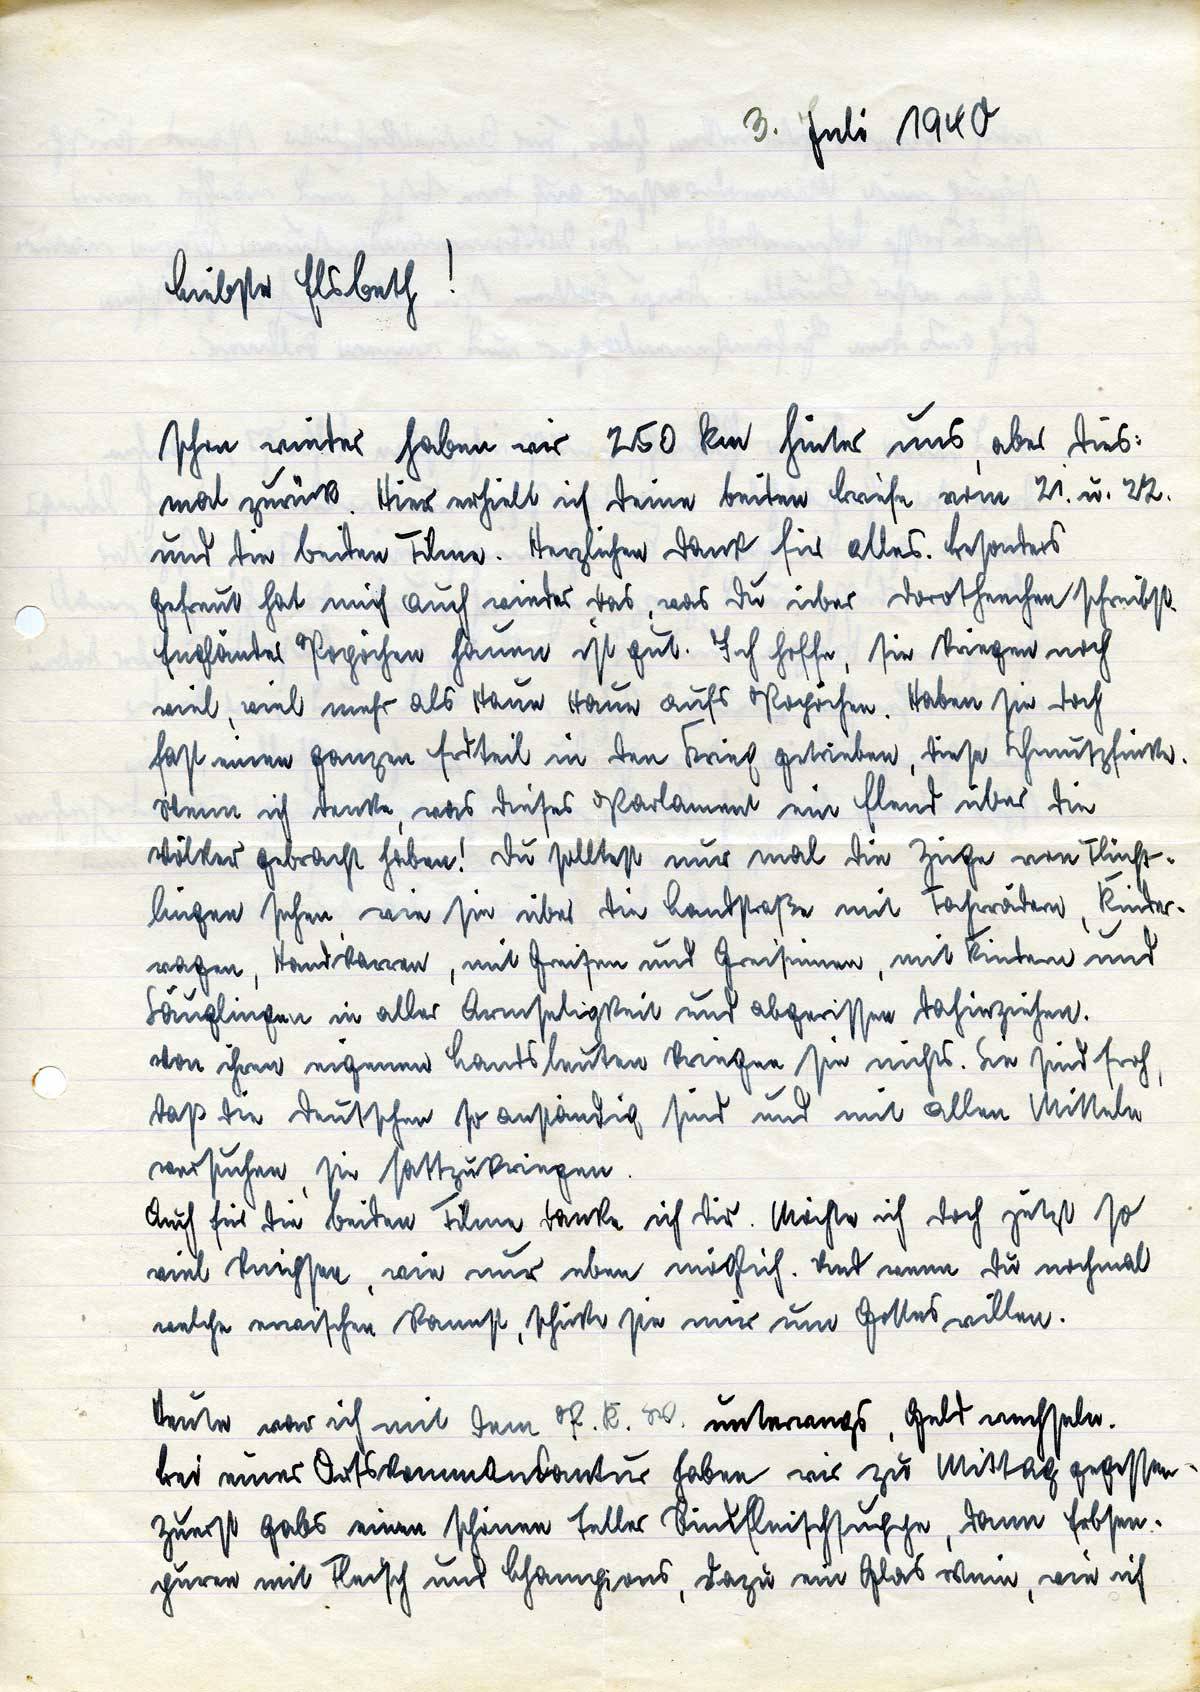 3. Juli 1940
Liebste Elsbeth!
Schon wieder haben wir 250 km hinter uns, aber dies=
mal zurück. Hier erhielt ich Deine beiden Briefe vom 21. u. 22.
und die beiden Filme. Herzlichen Dank für alles. Besonders
gefreut hat mich auch wieder das, was Du über Dorotheechen schreibst.
Engländer Popöchen hauen ist gut. Ich hoffe, sie kriegen noch
viel, viel mehr als Haue Haue aufs Popöchen. Haben sie doch
fast einen ganzen Erdteil in den Krieg getrieben, diese Schmutzfinke.
Wenn ich denke, was dieses Parlament ein Elend über die
Völker gebracht haben! Du solltest nur mal die Züge von Flücht-
lingen sehen, wie sie über die Landstraße mit Fahrrädern, Kinder-
wagen, Handkarren, mit Greisen und Greisinnen, mit Kindern und
Säuglingen in aller Armseligkeit und abgerissen dahinziehen.
Von ihren eigenen Landsleuten kriegen sie nichts. Sie sind froh,
daß die Deutschen so anständig sind und mit allen Mitteln
versuchen, sie sattzukriegen.
Auch für die beiden Filme danke ich Dir. Möchte ich doch jetzt so
viel knipsen, wie nur eben möglich. Und wenn Du nochmal
welche erwischen kannst, schicke sie mir um Gottes willen.
Heute war ich mit dem P.K.W. unterwegs, Geld wechseln.
Bei einer Ortskommandantur haben wir zu Mittag gegessen.
Zuerst gabs einen schönen Teller Rindfleischsuppe, dann Erbsen-
puree mit Fleisch und Champions, dazu ein Glas Wein, wie ich